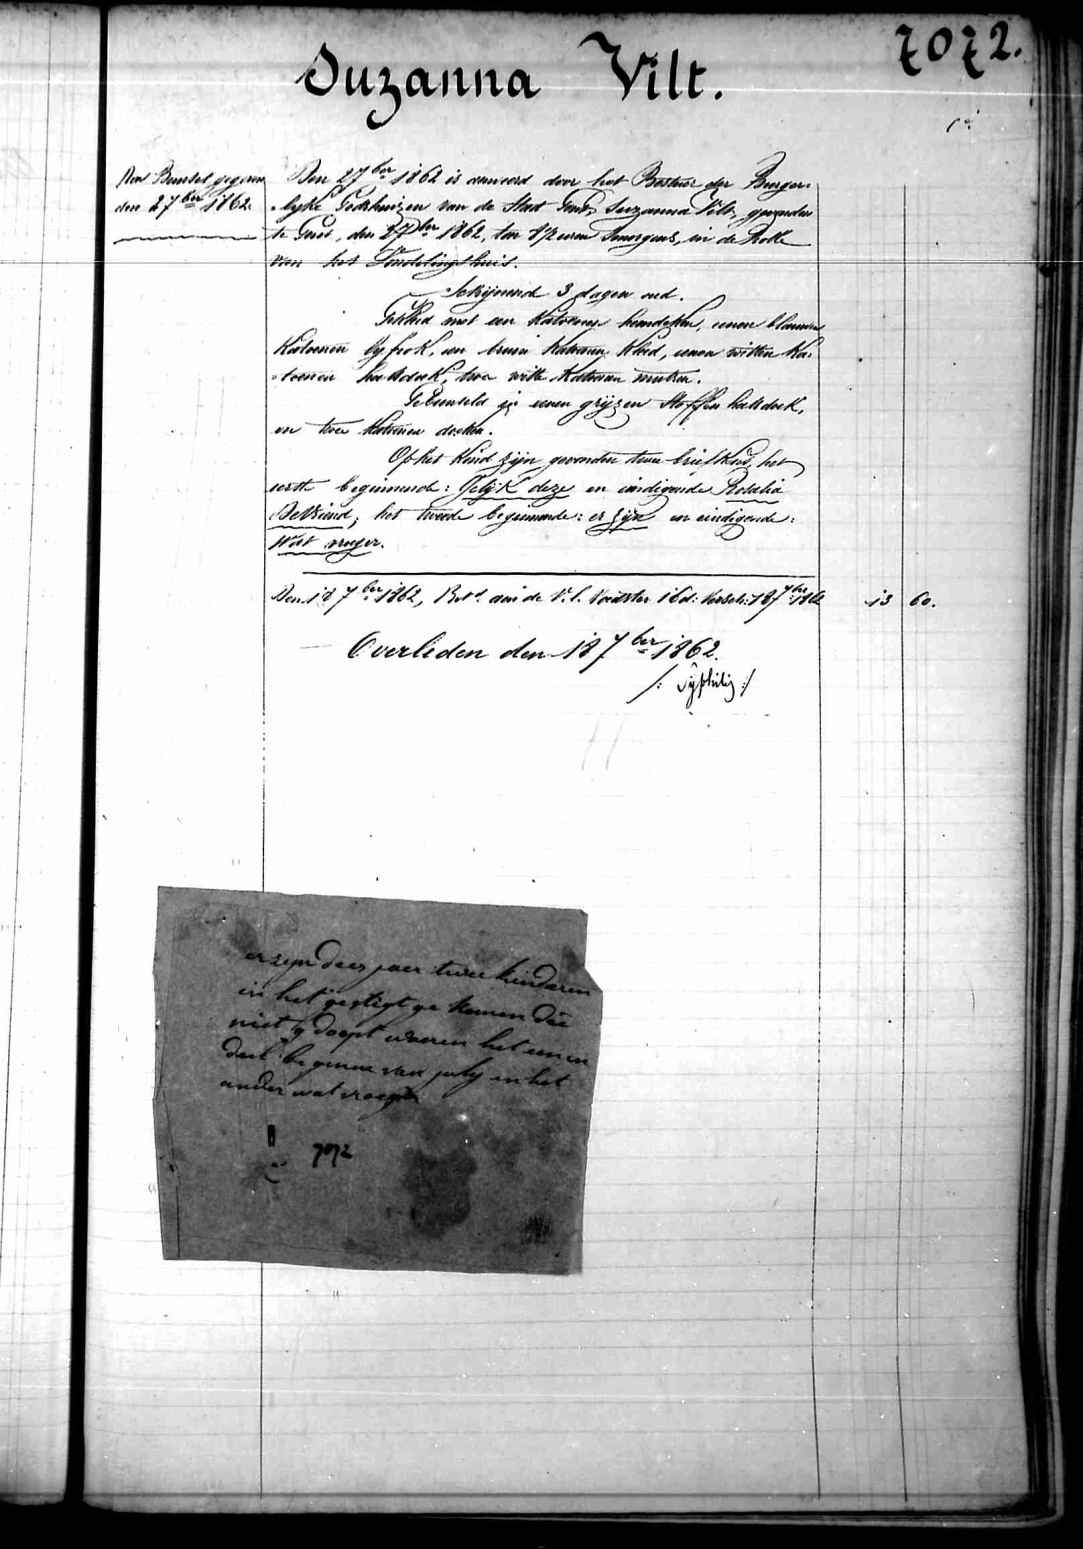 7072.
Suzanna Vilt.
den 2 7ber 1862
Den 2 7ber 1862 is aanveerd door het Bestuur der Burger-
lyke Godshuizen van de Stad Gent, Suzanna Vilt, gevonden
te Gent, den 2 7ber 1862, ten 1/2 uren smorgens, in de Rolle
van het Vondelingshuis.
Schijnend 3 dagen oud.
Gekleed met een katoenen hemdeken, eenen blauwen
katoenen lyfrok, een bruin katoenen kleed, eenen witten ka-
toenen halsdoek, twee witte katoenen mutsen.
Gebunseld in eenen grijzen stoffen halsdoek,
en twee katoenen doeken.
Op het kind zijn gevonden twee briefkens, het
eerste beginnende: Gelijk deze en eindigende Rosalia
DeVriend; het tweede beginnende: er zijn en eindigende:
wat vroeger.
Den 18 7ber 1862, Bet. aan de V. l. Voedster 16 d: versch: 18 7ber 1862 13 60.
Overleden den 18 7ber 1862.
/: syphilis :/
er zyn dees jaer twee kinderen
in het gestigt ge komen die
niet g doopt waeren het een in
deel beginne van july en het
ander wat vroeger
7072